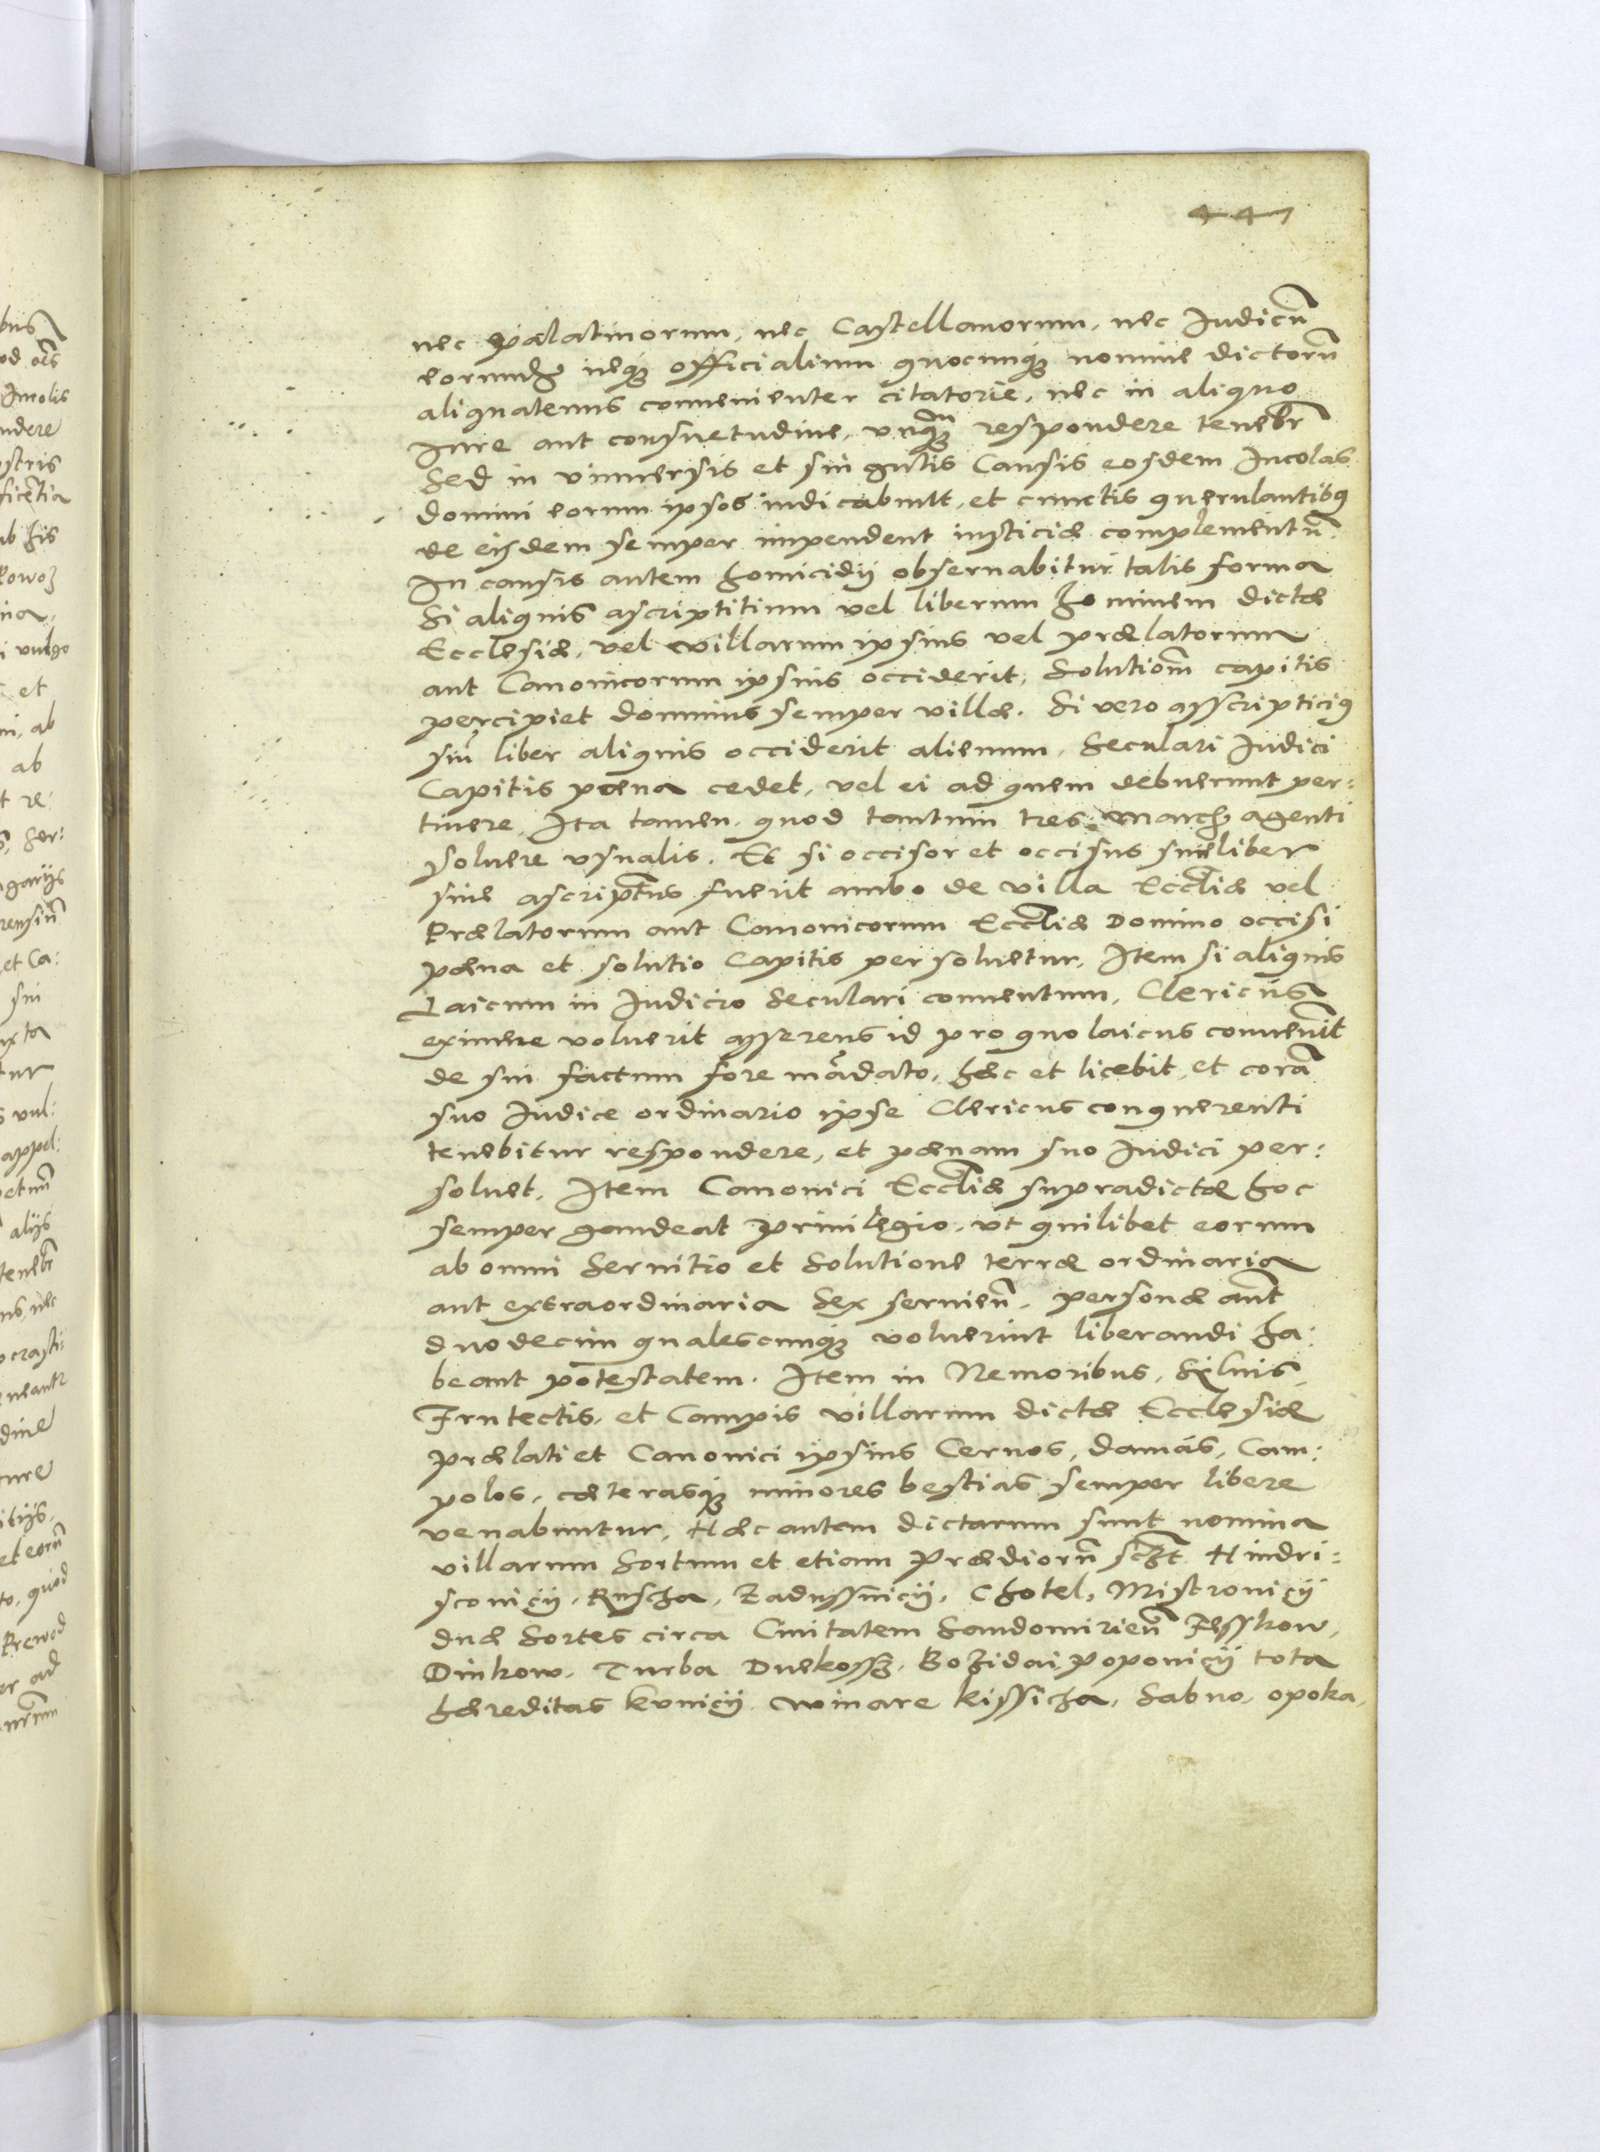 447
nec palatinorum, nec Castellanorum, nec Iudicũ
eorundẽ neq; officialium quocunq; nomine dictorũ
aliquatenus conuenienter citatorie, nec in aliquo
Iure aut consuetudine, vnq̃ respondere tenebr̃
Sed in vniuersis et singulis Causis eosdem Incolas
domini eorum ipsos iudicabunt, et cunctis querulantibq
de eisdem semper impendent iusticiæ complementũ.
In causis autem homicidij obseruabitur talis forma
Si aliquis ascriptitium vel liberum hominem dictæ
Ecclesiæ, vel villarum ipsius vel prælatorum
aut Canonicorum ipsius occiderit, Solutiom̃ capitis
percipiet dominus semper villæ. Si vero asscripticiq
siũ liber aliquis occiderit alienum, Seculari Iudici
Capitis pœna cedet, vel ei ad quem debuerunt per:
tinere, Ita tamen quod tantum tres march agenti
soluere vsualis. Et si occisor et occisus siue liber
siue ascriptus fuerit ambo de villa Eccl̃iæ vel
Prælatorum aut Canonicorum Eccl̃iæ Domino occisi
pæna et solutio Capitis persoluetur, Item si aliquis
Laicum in Iudicio Seculari conuentum, Clericus
eximere voluerit asserens id pro quo laicus conuenit
de sui factum fore mãdato, hæc et licebit, et corã
suo Iudice ordinario ipse Clericus conquerenti
tenebitur respondere, et pœnam suo Iudici per:
soluet, Item Canonici Eccl̃iæ supradictæ hoc
semper gaudeat priuilegio, vt quilibet eorum
ab omni Seruitio et Solutione terræ ordinaria
aut extraordinaria Sex seruieñ, personæ aut̃
duodecim qualescunq; voluerint liberandi ha:
beant potestatem. Item in Nemoribus, Syluis,
Frutectis, et Campis villarum dictæ Ecclesiæ
prælati et Canonici ipsius Ceruos, damas, Cam:
polos, cæterasq; minores bestias semper libere
venabuntur, Hæc autem dictarum sunt nomina
villarum Sortum et etiam Prædiorũ sczt̃ Hindri:
sconicij, Ruscha, Zadussnicij, Chotel, Mistronicij
duæ Sortes circa Ciuitatem Sandomirieñ Pesskow,
Dinkow, Turba Dwekossz, Bozidai, Poponicij tota
hæreditas Kunicij winare kissicza, Sabno, opoka,